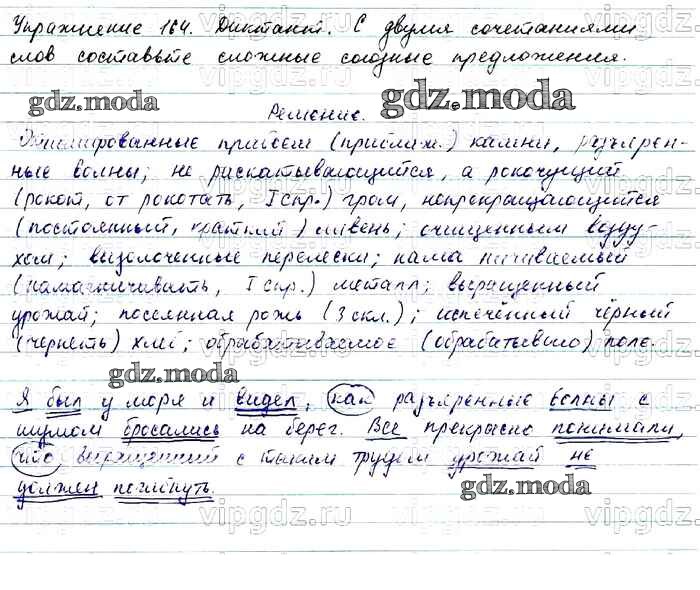 Упражнение 164. Диктант. С двумя сочетаниями
слов составьте сложные союзные предложения.
gdz.moda
Решение.
gdz.moda
Отшлифованные прибоем (прибляж.) камни, разъярен-
ные волны; не раскатывающийся, а рокочущий
(рокот, от рокотать, I спр.) гром, непрекращающийся
(постоянный, краткий) ливень; очищенным возду-
хом; вызолоченные перелески; намагничиваемый
(намагничивать, I спр.) металл; выращенный
урожай; посеянная рожь (3 скл.); испечённый чёрный
(чернеть) хлеб; обрабатываемое (обрабатывало) поле.
gdz.moda
Я был у моря и видел, как разъяренные волны с
шумом бросались на берег. Все прекрасно понимали,
что выращенный с таким трудом урожай не
должен погибнуть.
gdz.moda
vipgdz.ru